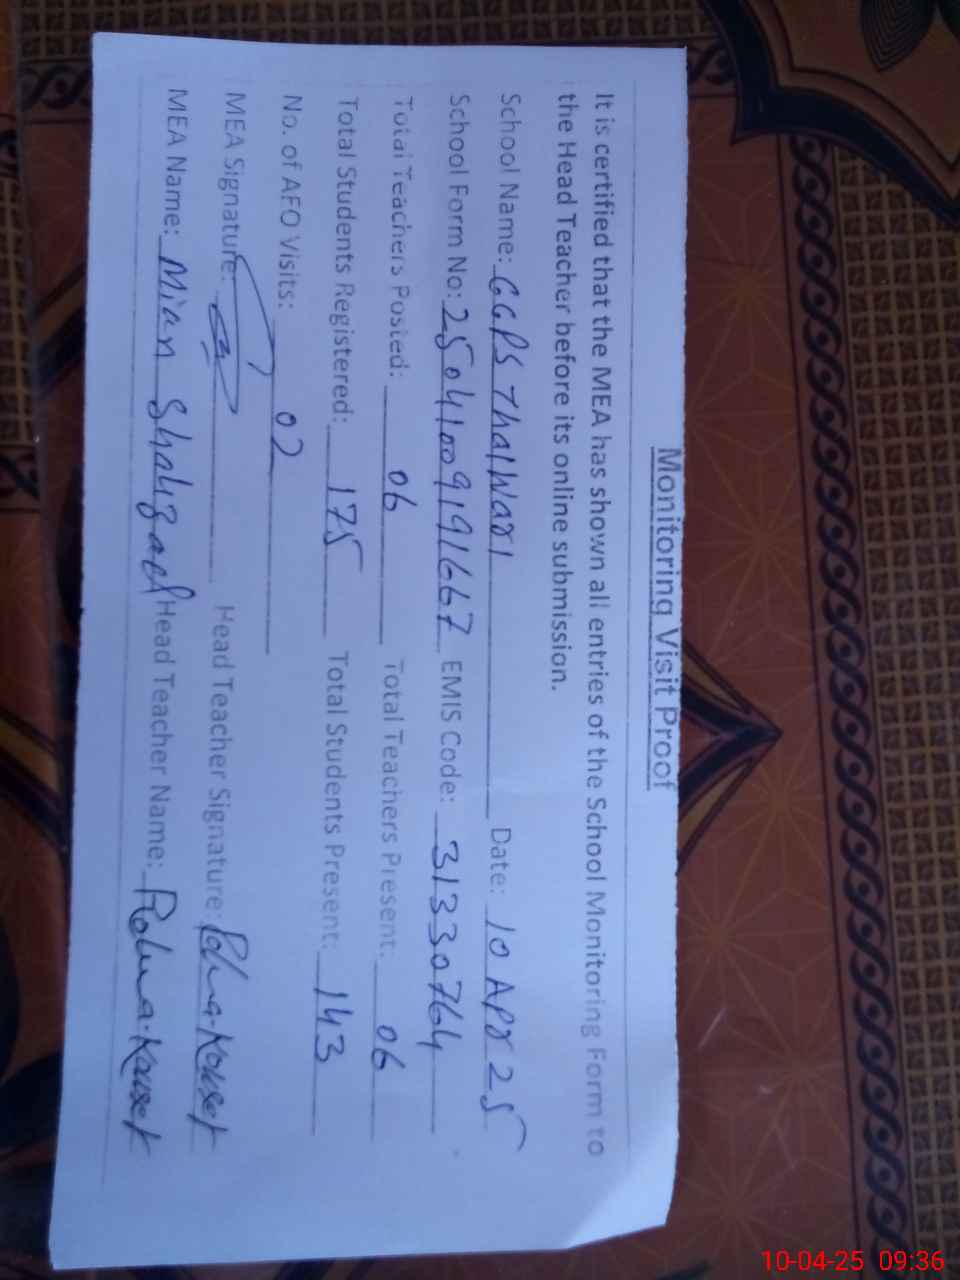 Monitoring Visit Proof
It is certified that the MEA has shown all entries of the School Monitoring Form to
the Head Teacher before its online submission.
School Name: GGPS Thalwari Date: 10 Apr 25
School Form No: 25041009191667 EMIS Code: 31330764
Total Teachers Posted: 06 Total Teachers Present: 06
Total Students Registered: 175 Total Students Present: 143
No. of AEO Visits: 02
MEA Signature: Head Teacher Signature: Kousar
MEA Name: Mian Shahzad Head Teacher Name: Kousar
10-04-25 09:36